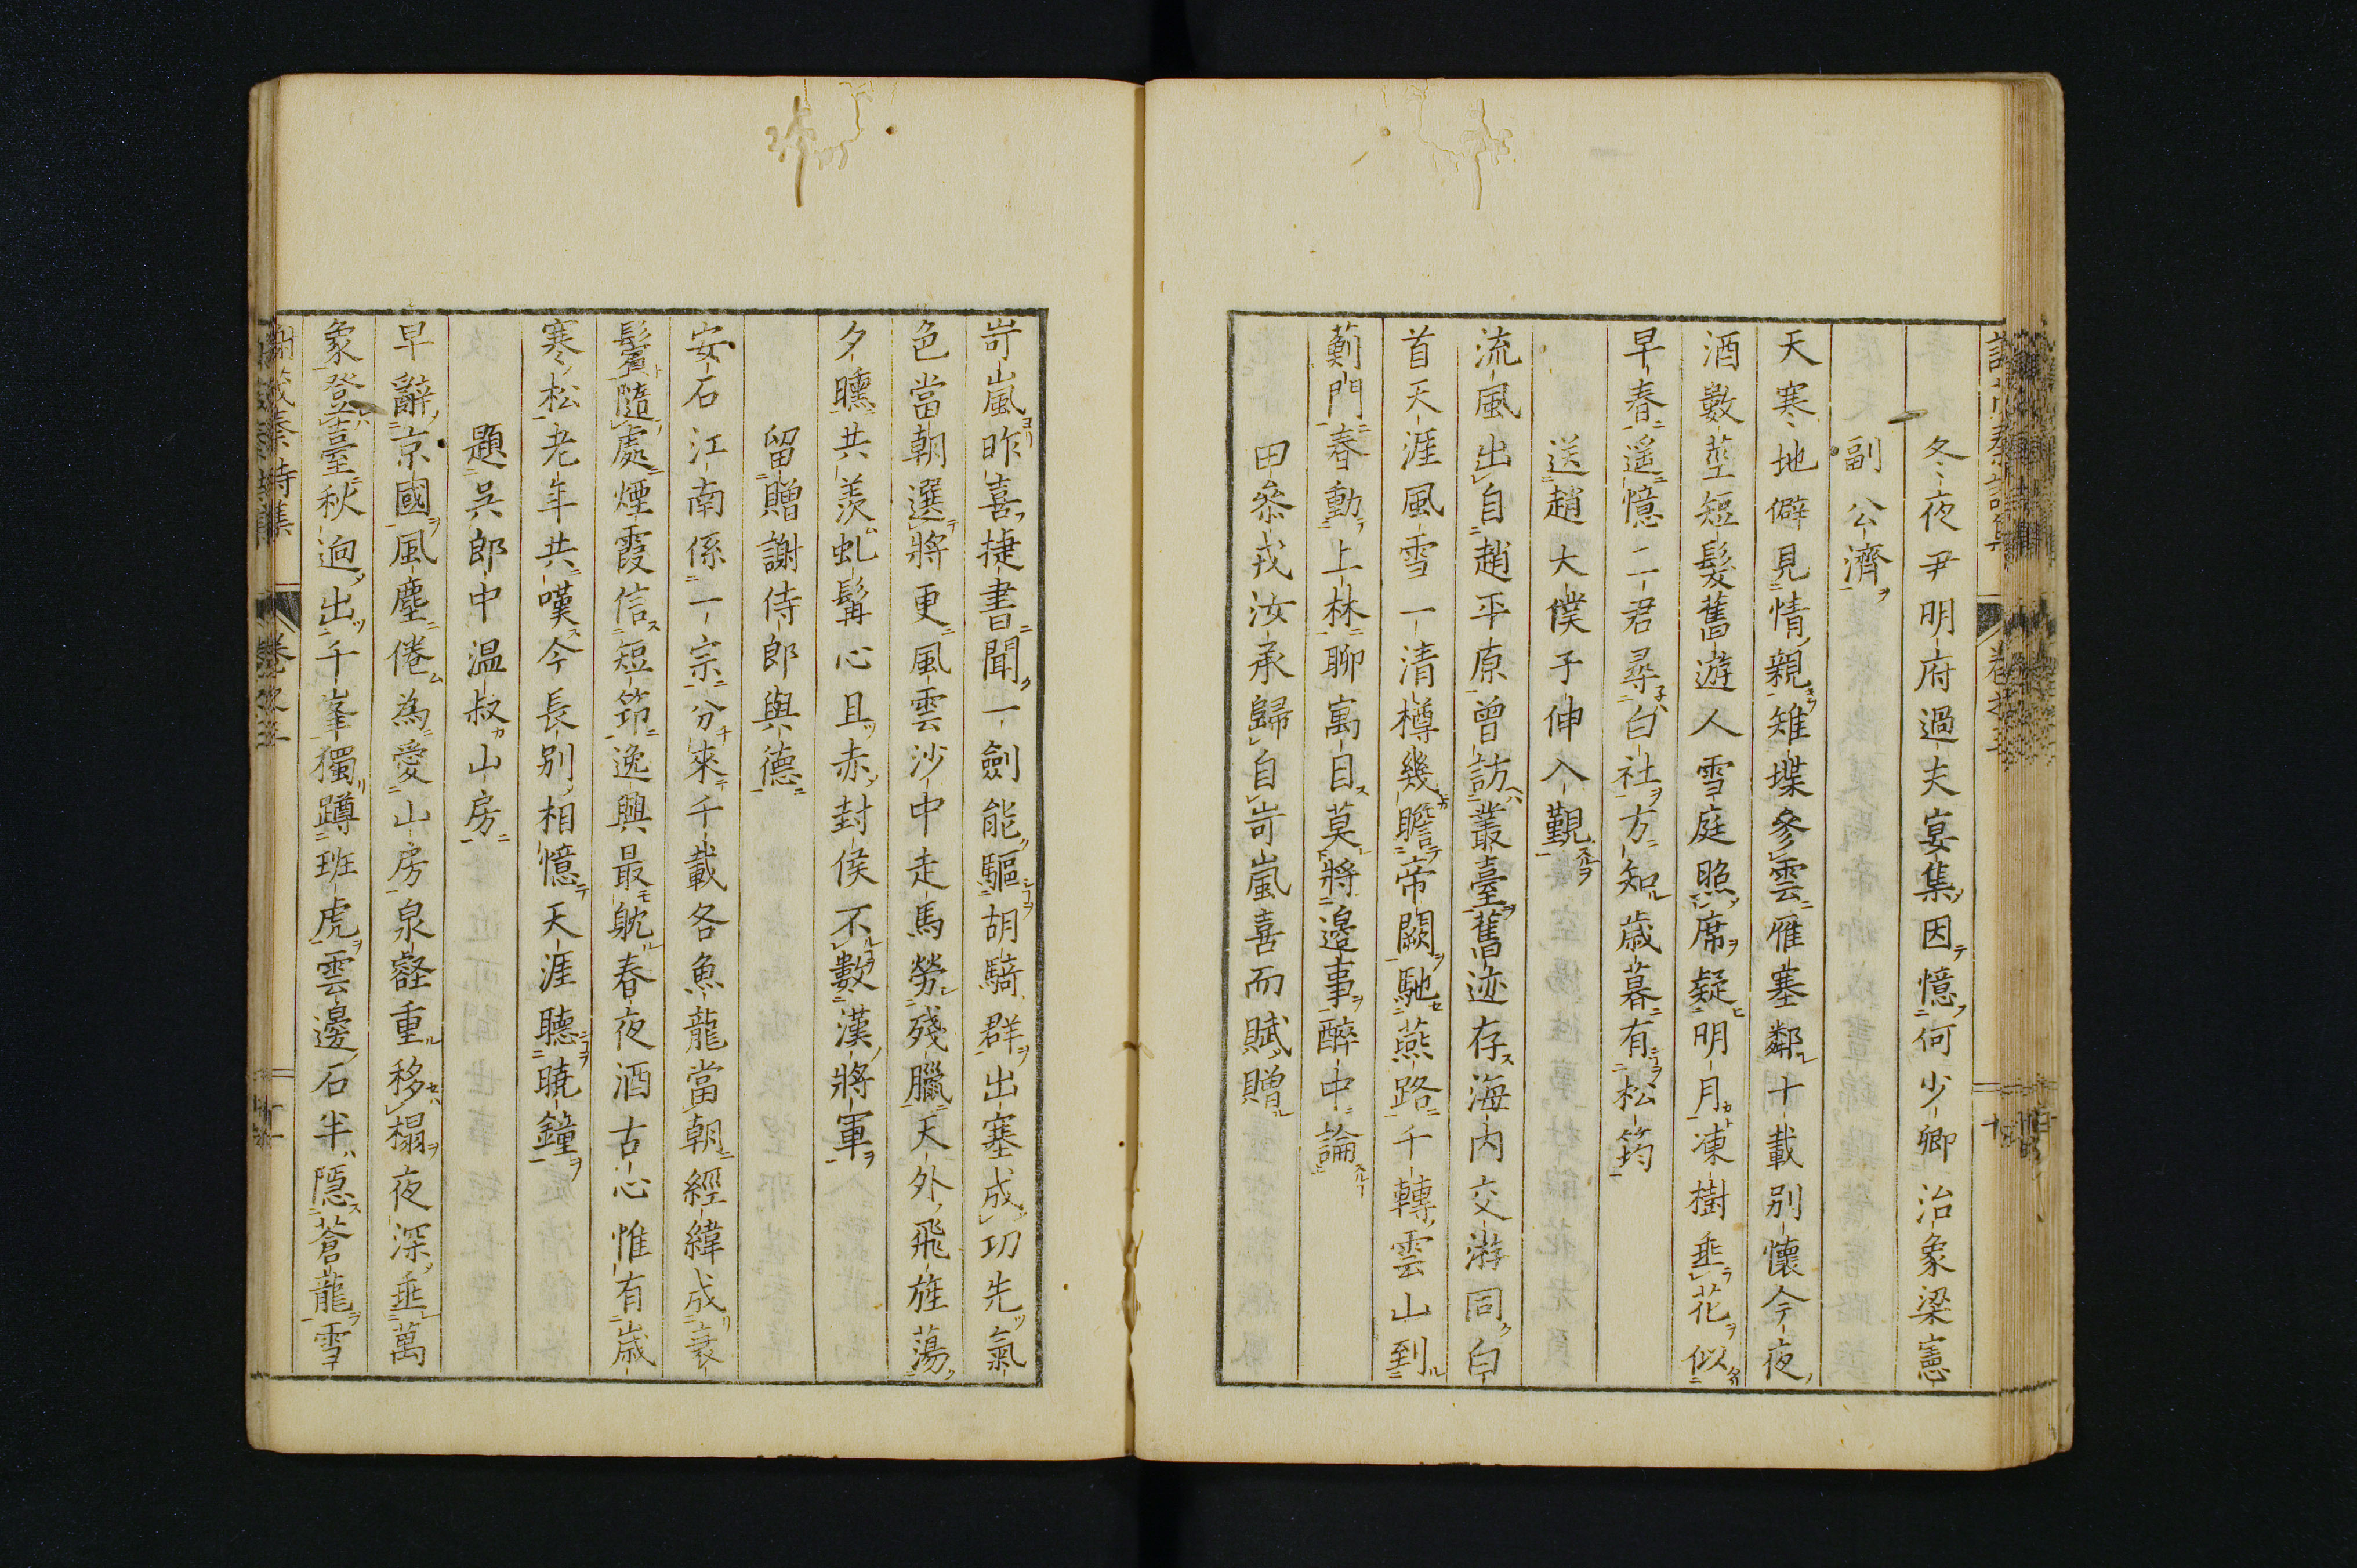 冬夜尹明府過夫宴集因憶何少卿治象梁憲
副公濟
天寒地僻見情親雉堞參雲雁塞鄰十載別懷今夜
酒數莖短髮舊遊人雪庭照席疑明月凍樹垂花似
早春遥憶二君尋白社方知歳暮有松筠
送趙大僕子伸入覲
流風出自趙平原曾訪叢臺舊迹存海內交游同白
首天涯風雪一清樽幾瞻帝闕馳燕路千轉雲山到
薊門春動上林聊寓目莫將邉事醉中論
田叅戎汝承歸自岢嵐喜而賦贈
岢嵐昨喜捷書聞一劍能驅胡騎群出塞成功先氣
色當朝選將更風雲沙中走馬勞殘臘天外飛旌蕩
夕曛共羨虬髯心且赤封侯不數漢將軍
留贈謝侍郎與德
安石江南係一宗分來千載各魚龍當朝經緯成衰
鬢隨處煙霞信短笻逸興最躭春夜酒古心惟有歳
寒松老年共嘆今長别相憶天涯聽曉鐘
題吳郎中温叔山房
早辭京國風塵倦為愛山房泉壑重移榻夜深垂萬
象登臺秋迥出千峯獨蹲班虎雲邊石半隱蒼龍雪
謝茂秦詩集